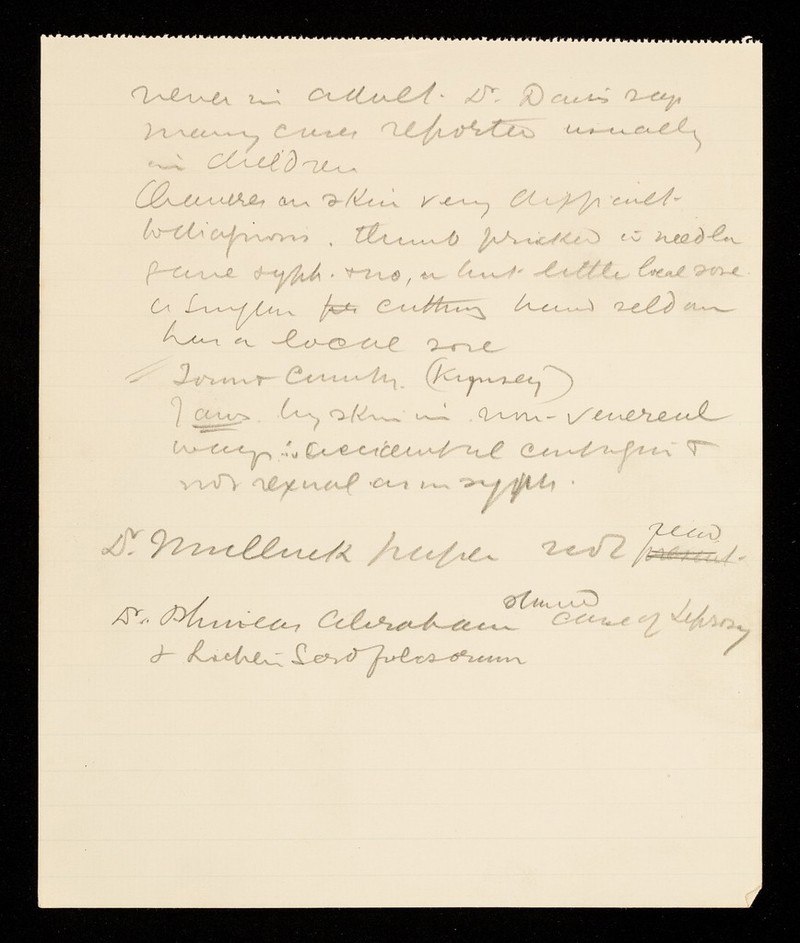 never in adult. Dr. Davis says
many cases reported usually
in children
Chancres on skin very difficult
to diagnosis. thumb pricked c needle
gave syph. & no, or but little local sore.
a Surgeon cutting hand seldom
has a local sore
(Kynsey)
Yaws by skin in non-venereal
ways ∴ accidental contagion &
not sexual as in syph.
Dr. Mullick paper not read present
Dr. Phineas Abraham showed case of Leprosy
& Lichen